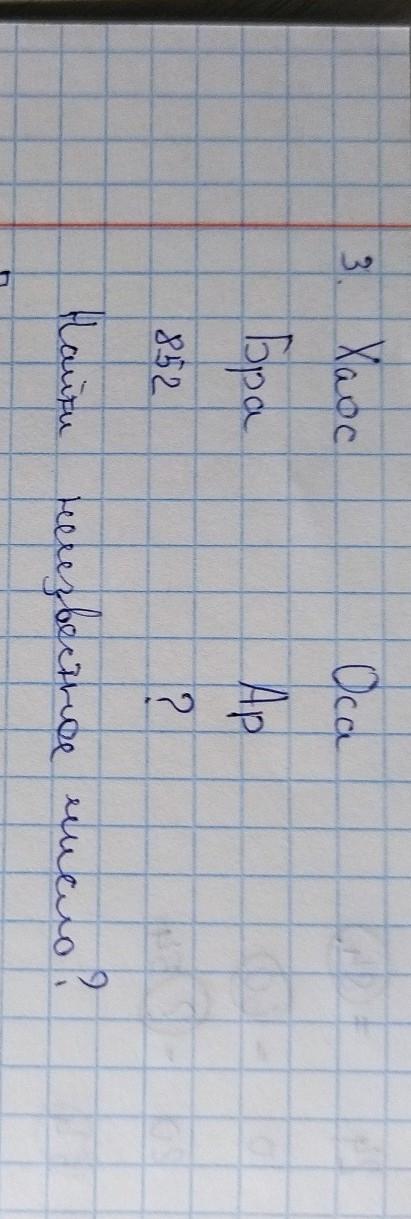 3. Хаос Оса
Бра Ар
852 ?
Найти неизвестное число?